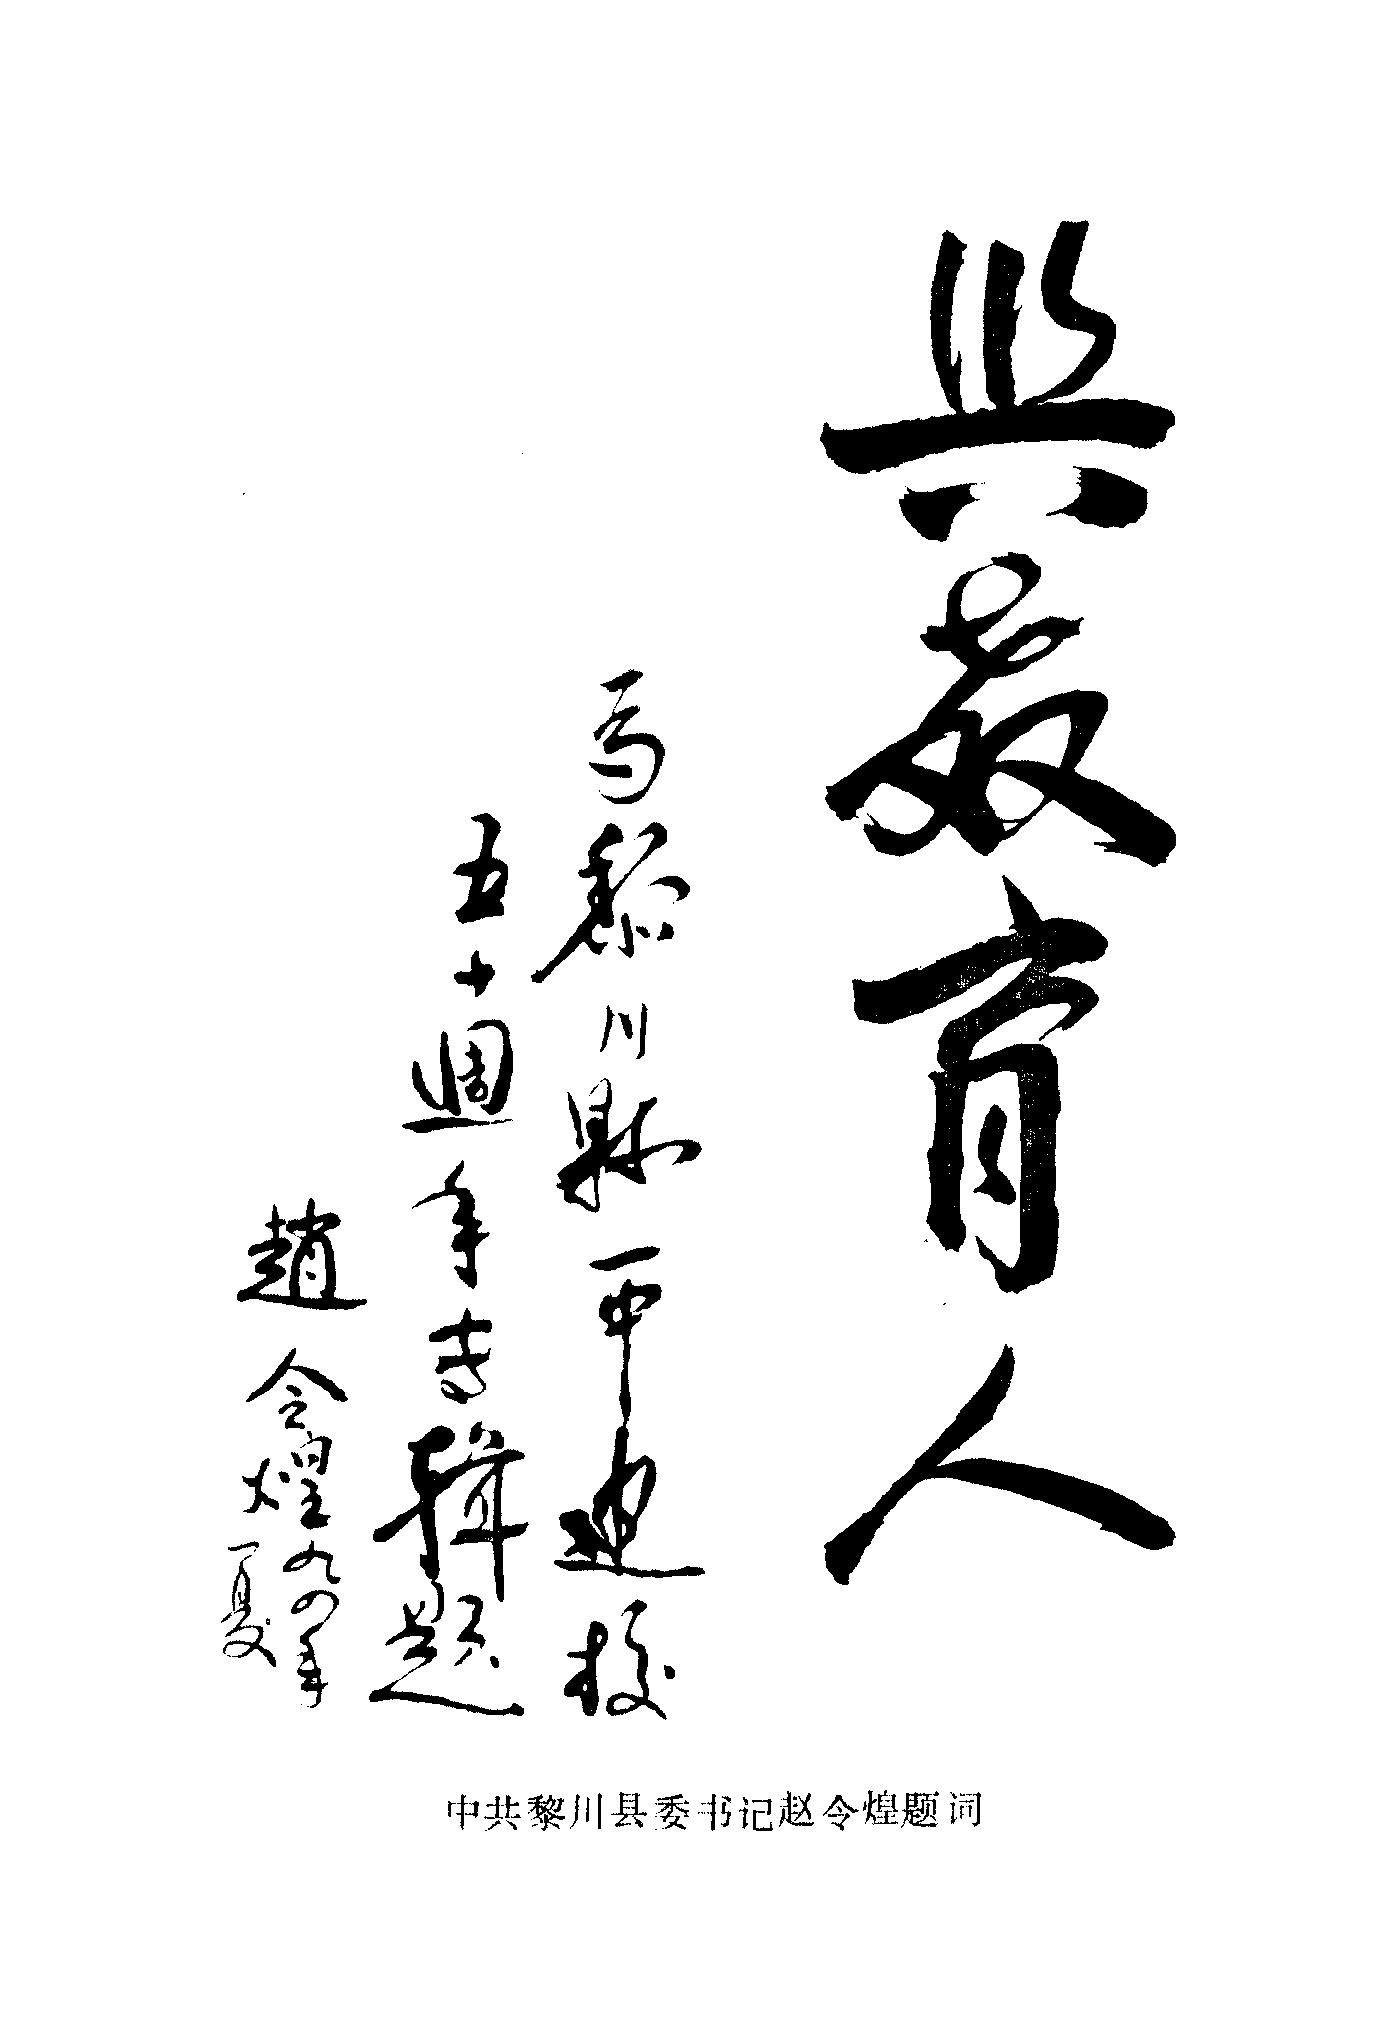 興教育人
为黎川縣一中建校
五十週年专辑题
趙令煌九四年
夏
中共黎川县委书记赵令煌题词